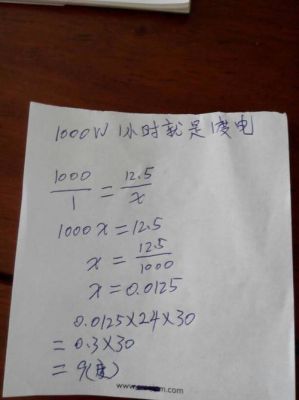 1000W 1小时就是1度电
1000/1 = 12.5/x
1000x=12.5
x = 12.5/1000
x=0.0125
0.0125×24×30
=0.3×30
=9(度)
www.